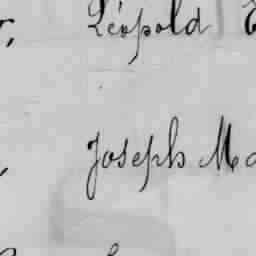 Léopold
Joseph Ma